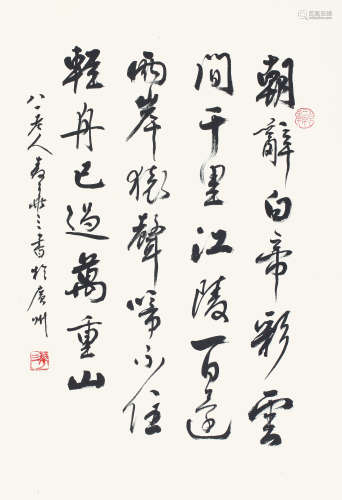 朝辭白帝彩雲
間千里江陵一百還
兩岸猿聲啼不住
輕舟已過萬重山
八一老人秦咢生書於廣州